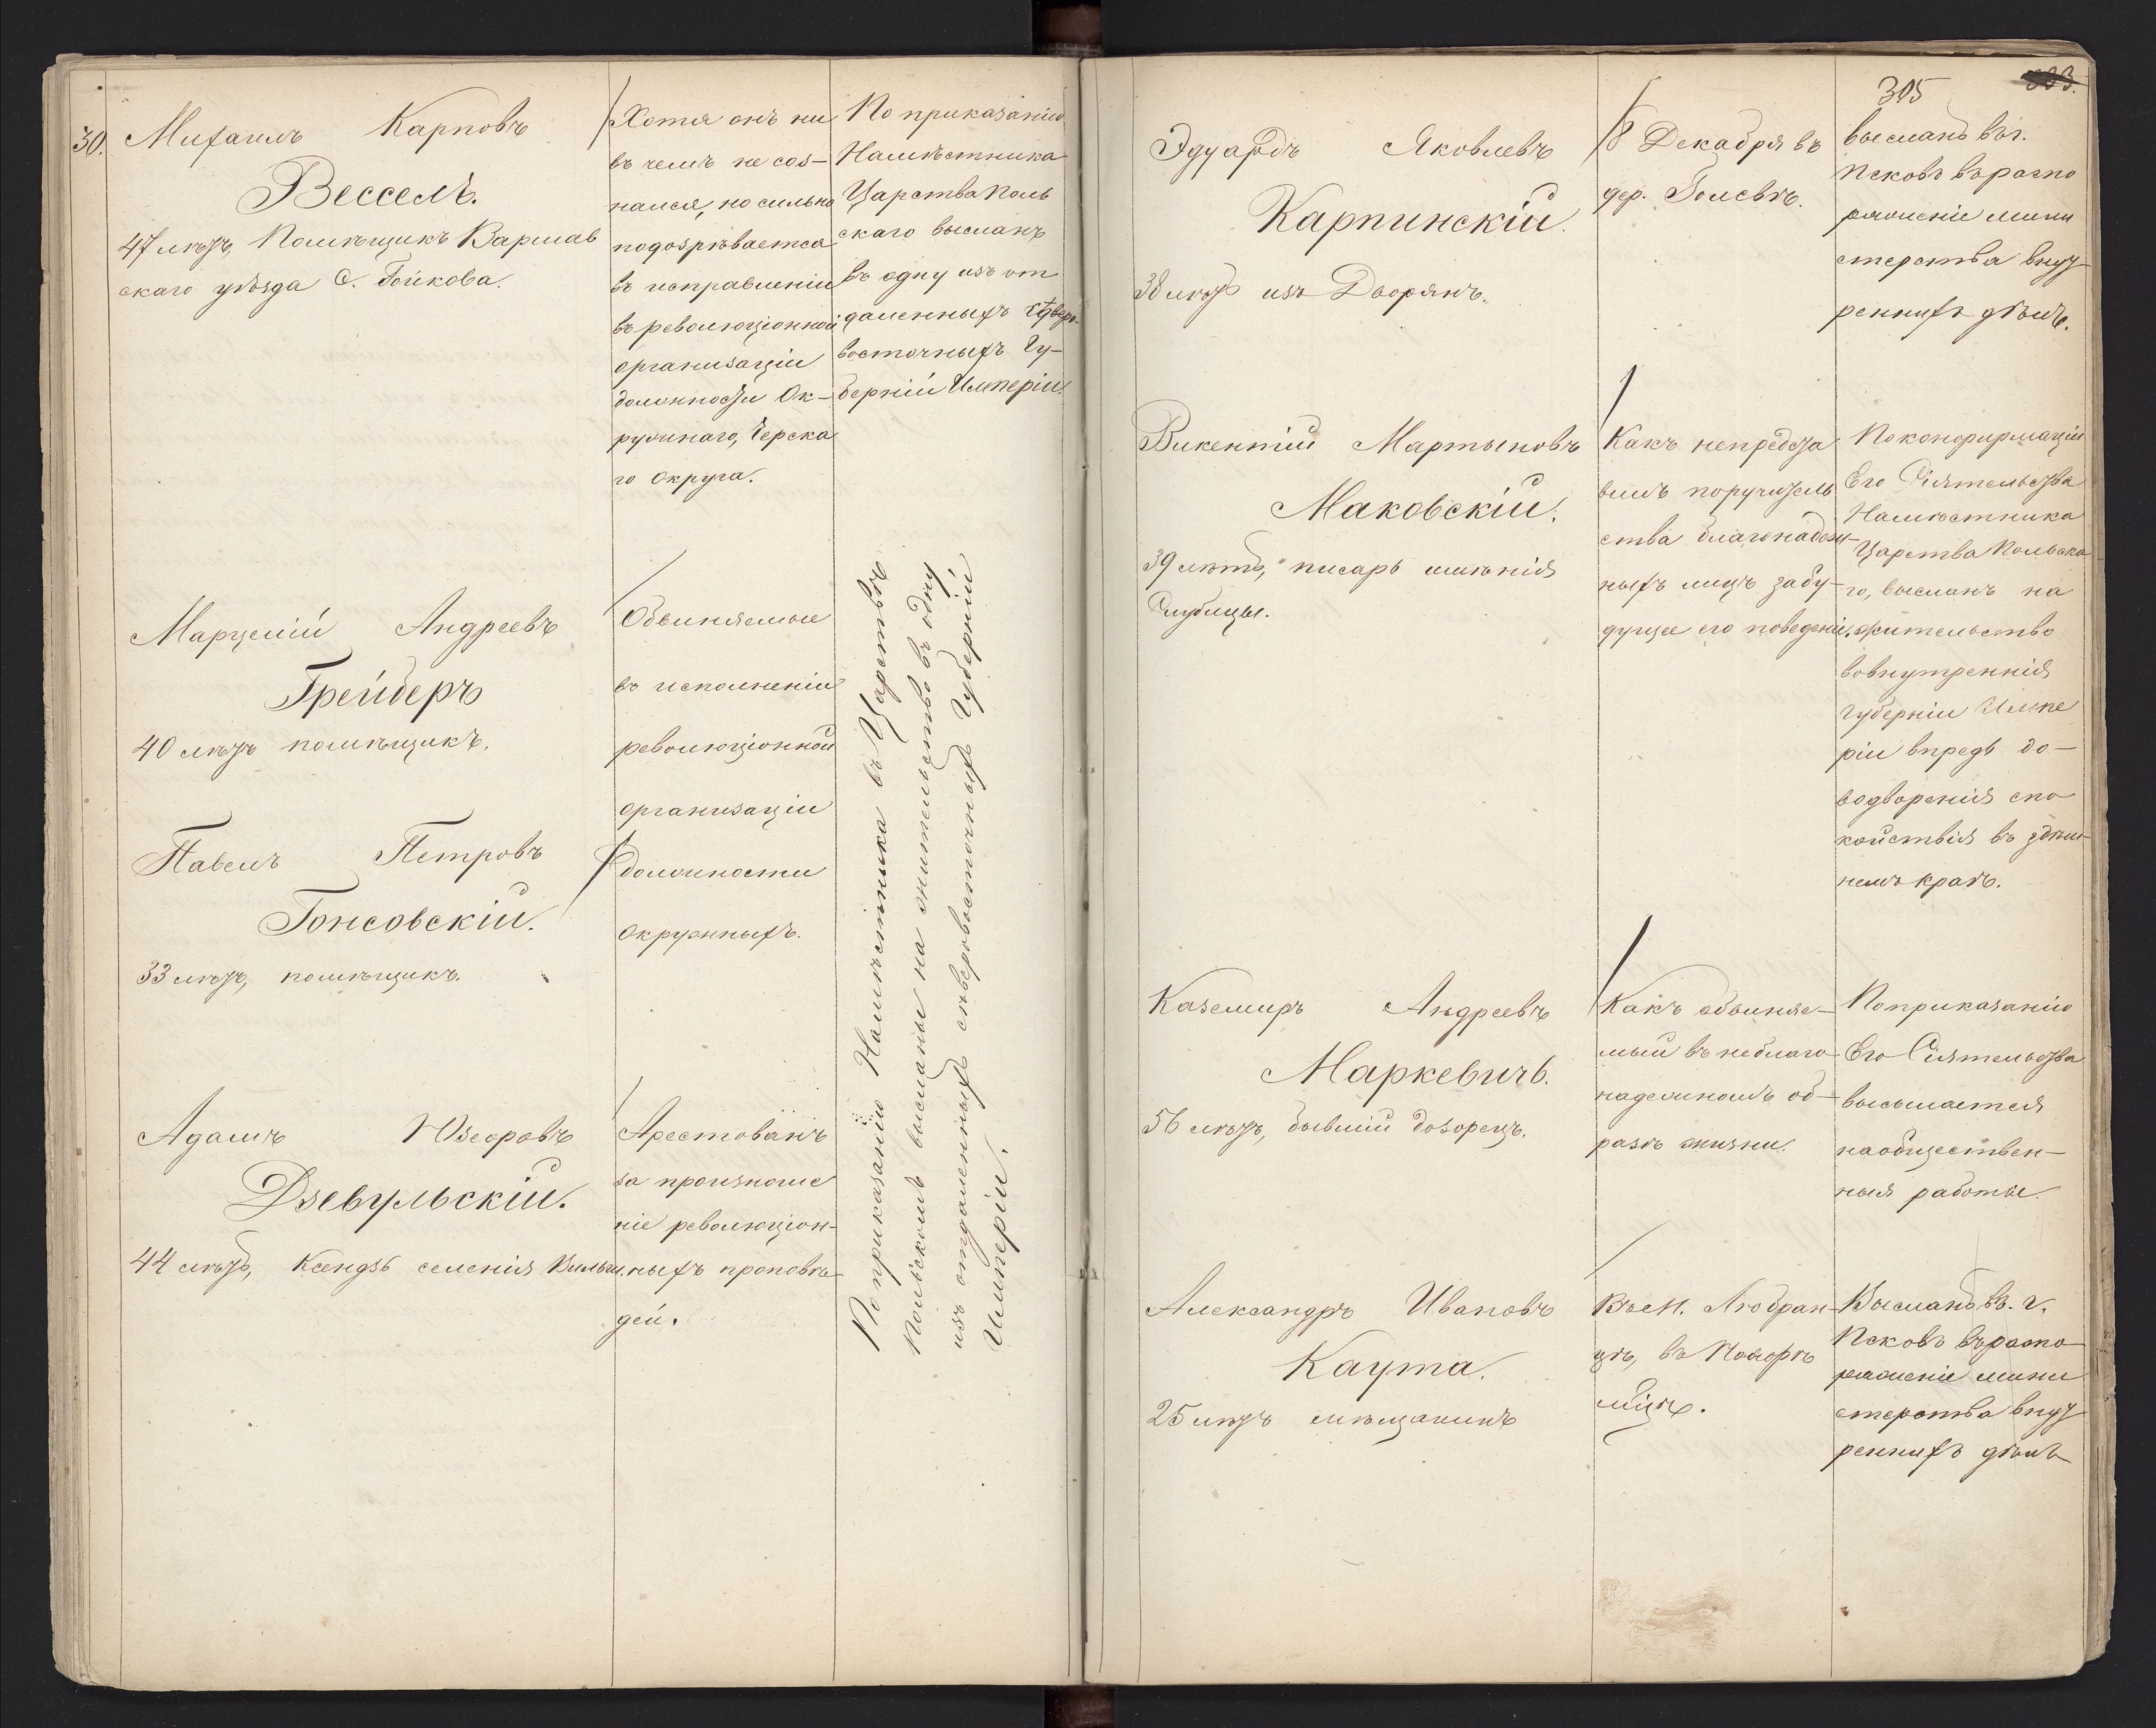 30.
Михаилъ Карповъ
Вессель.
47 лѣтъ, Помѣщикъ Варшав
скаго уѣзда С. Бойкова.
Хотя онъ ни
въ чемъ не соз-
нался, но сильно
подозрѣвается
въ исправленіи
въ революціонной
организаціи
должности Ок-
ружнаго, Черска
го округа.
По приказанію
Намѣстника
Царства Поль
скаго высланъ
въ одну изъ от
даленныхъ сѣверо-
восточныхъ Гу-
берній Имперіи.
Марцелій Андреевъ
Грейберъ
40 лѣтъ помѣщикъ.
Павелъ Петровъ
Гонсовскій.
33 лѣтъ, помѣщикъ.
Обвиняемые
въ исполненіи
революціонной
организаціи
должности
окружныхъ.
Адамъ Юзефовъ
Дзевульскій.
44 лѣтъ, Ксендзъ селенія
Арестованъ
за произноше
ніе революціон-
ныхъ проповѣ-
дей.
По приказанію Намѣстника въ Царствѣ
Польскомъ высланы на жительство въ одну
изъ отдаленныхъ сѣверовосточныхъ Губерній
Имперіи.
305
Эдуардъ Яковлевъ
Карпинскій.
38 лѣтъ изъ Дворянъ.
8 Декабря въ
дер. Голевѣ.
высланъ въ г.
Псковъ въ распо
ряженіе мини
стерства внут
реннихъ дѣлъ.
Викентій Мартыновъ
Маковскій.
39 лѣтъ, писарь имѣнія
Слубицы.
Какъ непредста
вилъ поручитель
ства благонадеж-
ныхъ лицъ за бу-
дущее его поведеніе.
По конфирмаціи
Его Сіятельства
Намѣстника
Царства Польска
го, высланъ на
жительство
во внутреннія
губерніи Импе
ріи впредь до-
водворенія спо
койствія въ здѣш-
немъ краѣ.
Каземиръ Андреевъ
Маркевичъ.
56 лѣтъ, бывшій дозорецъ.
Какъ обвиняе-
мый въ неблаго-
надежномъ об-
разѣ жизни.
По приказанію
Его Сіятельства
высылается
на обществен-
ныя работы.
Александръ Ивановъ
Каута.
25 лѣтъ мѣщанинъ
Въ м. Любран-
цѣ, въ Ноябрѣ
мѣцѣ.
Высланъ въ г.
Псковъ въ распо
ряженіе мини
стерства внут
реннихъ дѣлъ